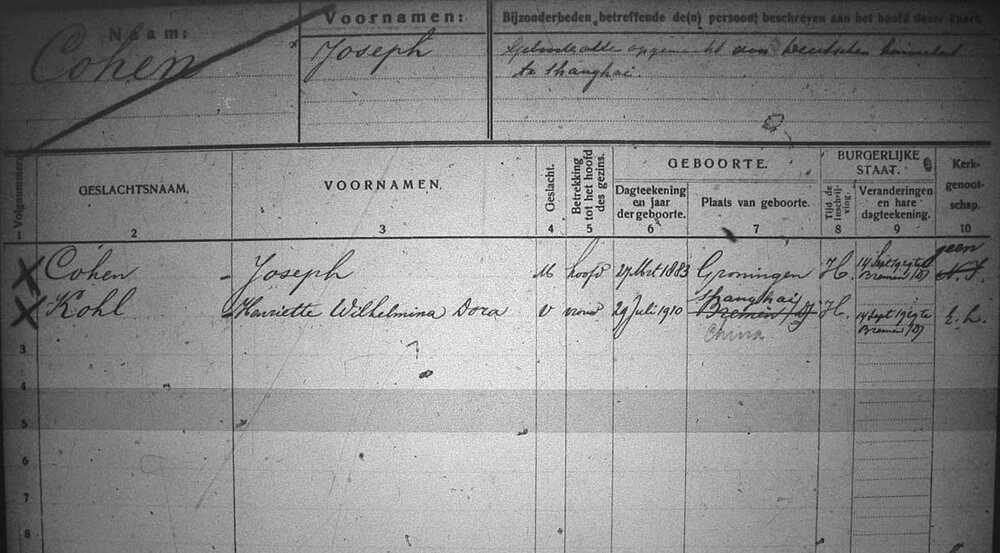 Naam:
Voornamen:
Bijzonderheden betreffende de(n) persoon, beschreven aan het hoofd dezer kaart.
Cohen
Joseph
Geboorteakte opgemaakt den Deutschen
te Shanghai.
Volgnummer.
GESLACHTSNAAM.
VOORNAMEN.
Geslacht.
Betrekking tot het hoofd des gezins.
GEBOORTE.
Dagteekening en jaar der geboorte.
Plaats van geboorte.
BURGERLIJKE STAAT.
Tijd der Inschrijving.
Veranderingen en hare dagteekening.
Kerk-genootschap.
1 2 3 4 5 6 7 8 9 10
geen
Cohen - Joseph M hoofd 27 1883 Groningen H. 14 Sept Bremen (D) N.I.
Shanghai
Kohl - Henriette Wilhelmina Dora V vrouw 29 Juli 1910 Bremen (D) H. 14 Sept Bremen (D) E.L.
China
3
4
5
6
7
8